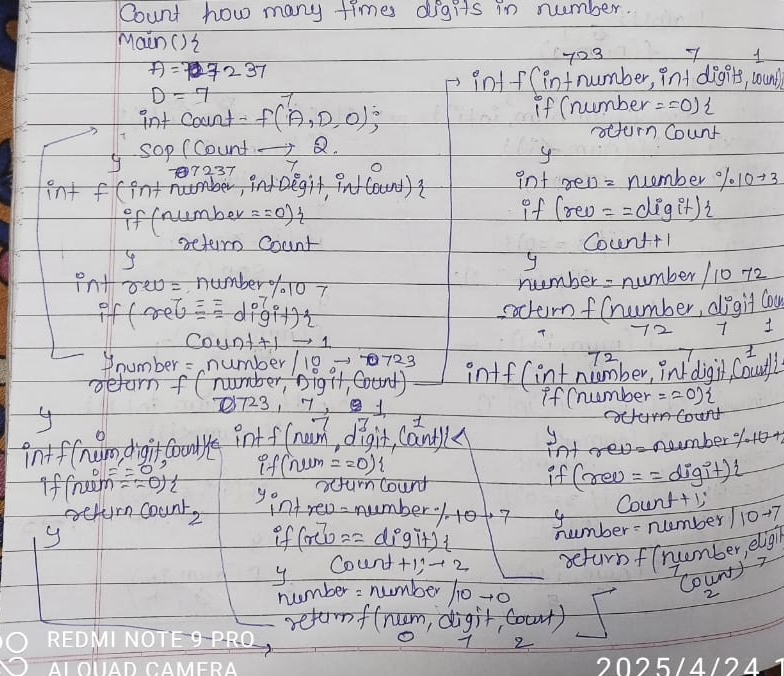 Count how many times digits in number.
Main(){
A=7237
D = 7
7
int Count = f(A, D, 0);
Sop(Count → 2.
}
7237 7 0
int f(int number, int Digit, int Count){
if(number ==0){
return Count
}
int rev = number%10 7
7 7
if(rev == digit){
Count+1 → 1
}number = number/10 → 723
return f(number, Digit, Count)
723, 7, 1
}
723 7 1
int f(int number, int digits, count)
if(number ==0){
return Count
}
int rev = number %10→3
if(rev ==digit){
Count+1
}
number = number/10 72
return f(number, digit Coun
72 7 1
72 7 1
int f(int number, int digit, Count){
if(number ==0){
return Count
}
int rev=number%10→2
if(rev == digit){
Count+1;
}
number = number/10→7
return f(number, digit
7 7
Count)
2
7 7 1
int f(num, digit, Count){
if(num ==0){
return Count
}
int rev=number%10→7
7
if(rev == digit){
Count+1;→2
}
number = number/10→0
return f(num, digit, Count)
0 7 2
0
int f(num, digit, Count){
0 == 0
if(num ==0){
return Count 2
}
REDMI NOTE 9 PRO
AI QUAD CAMERA
2025/4/24 1